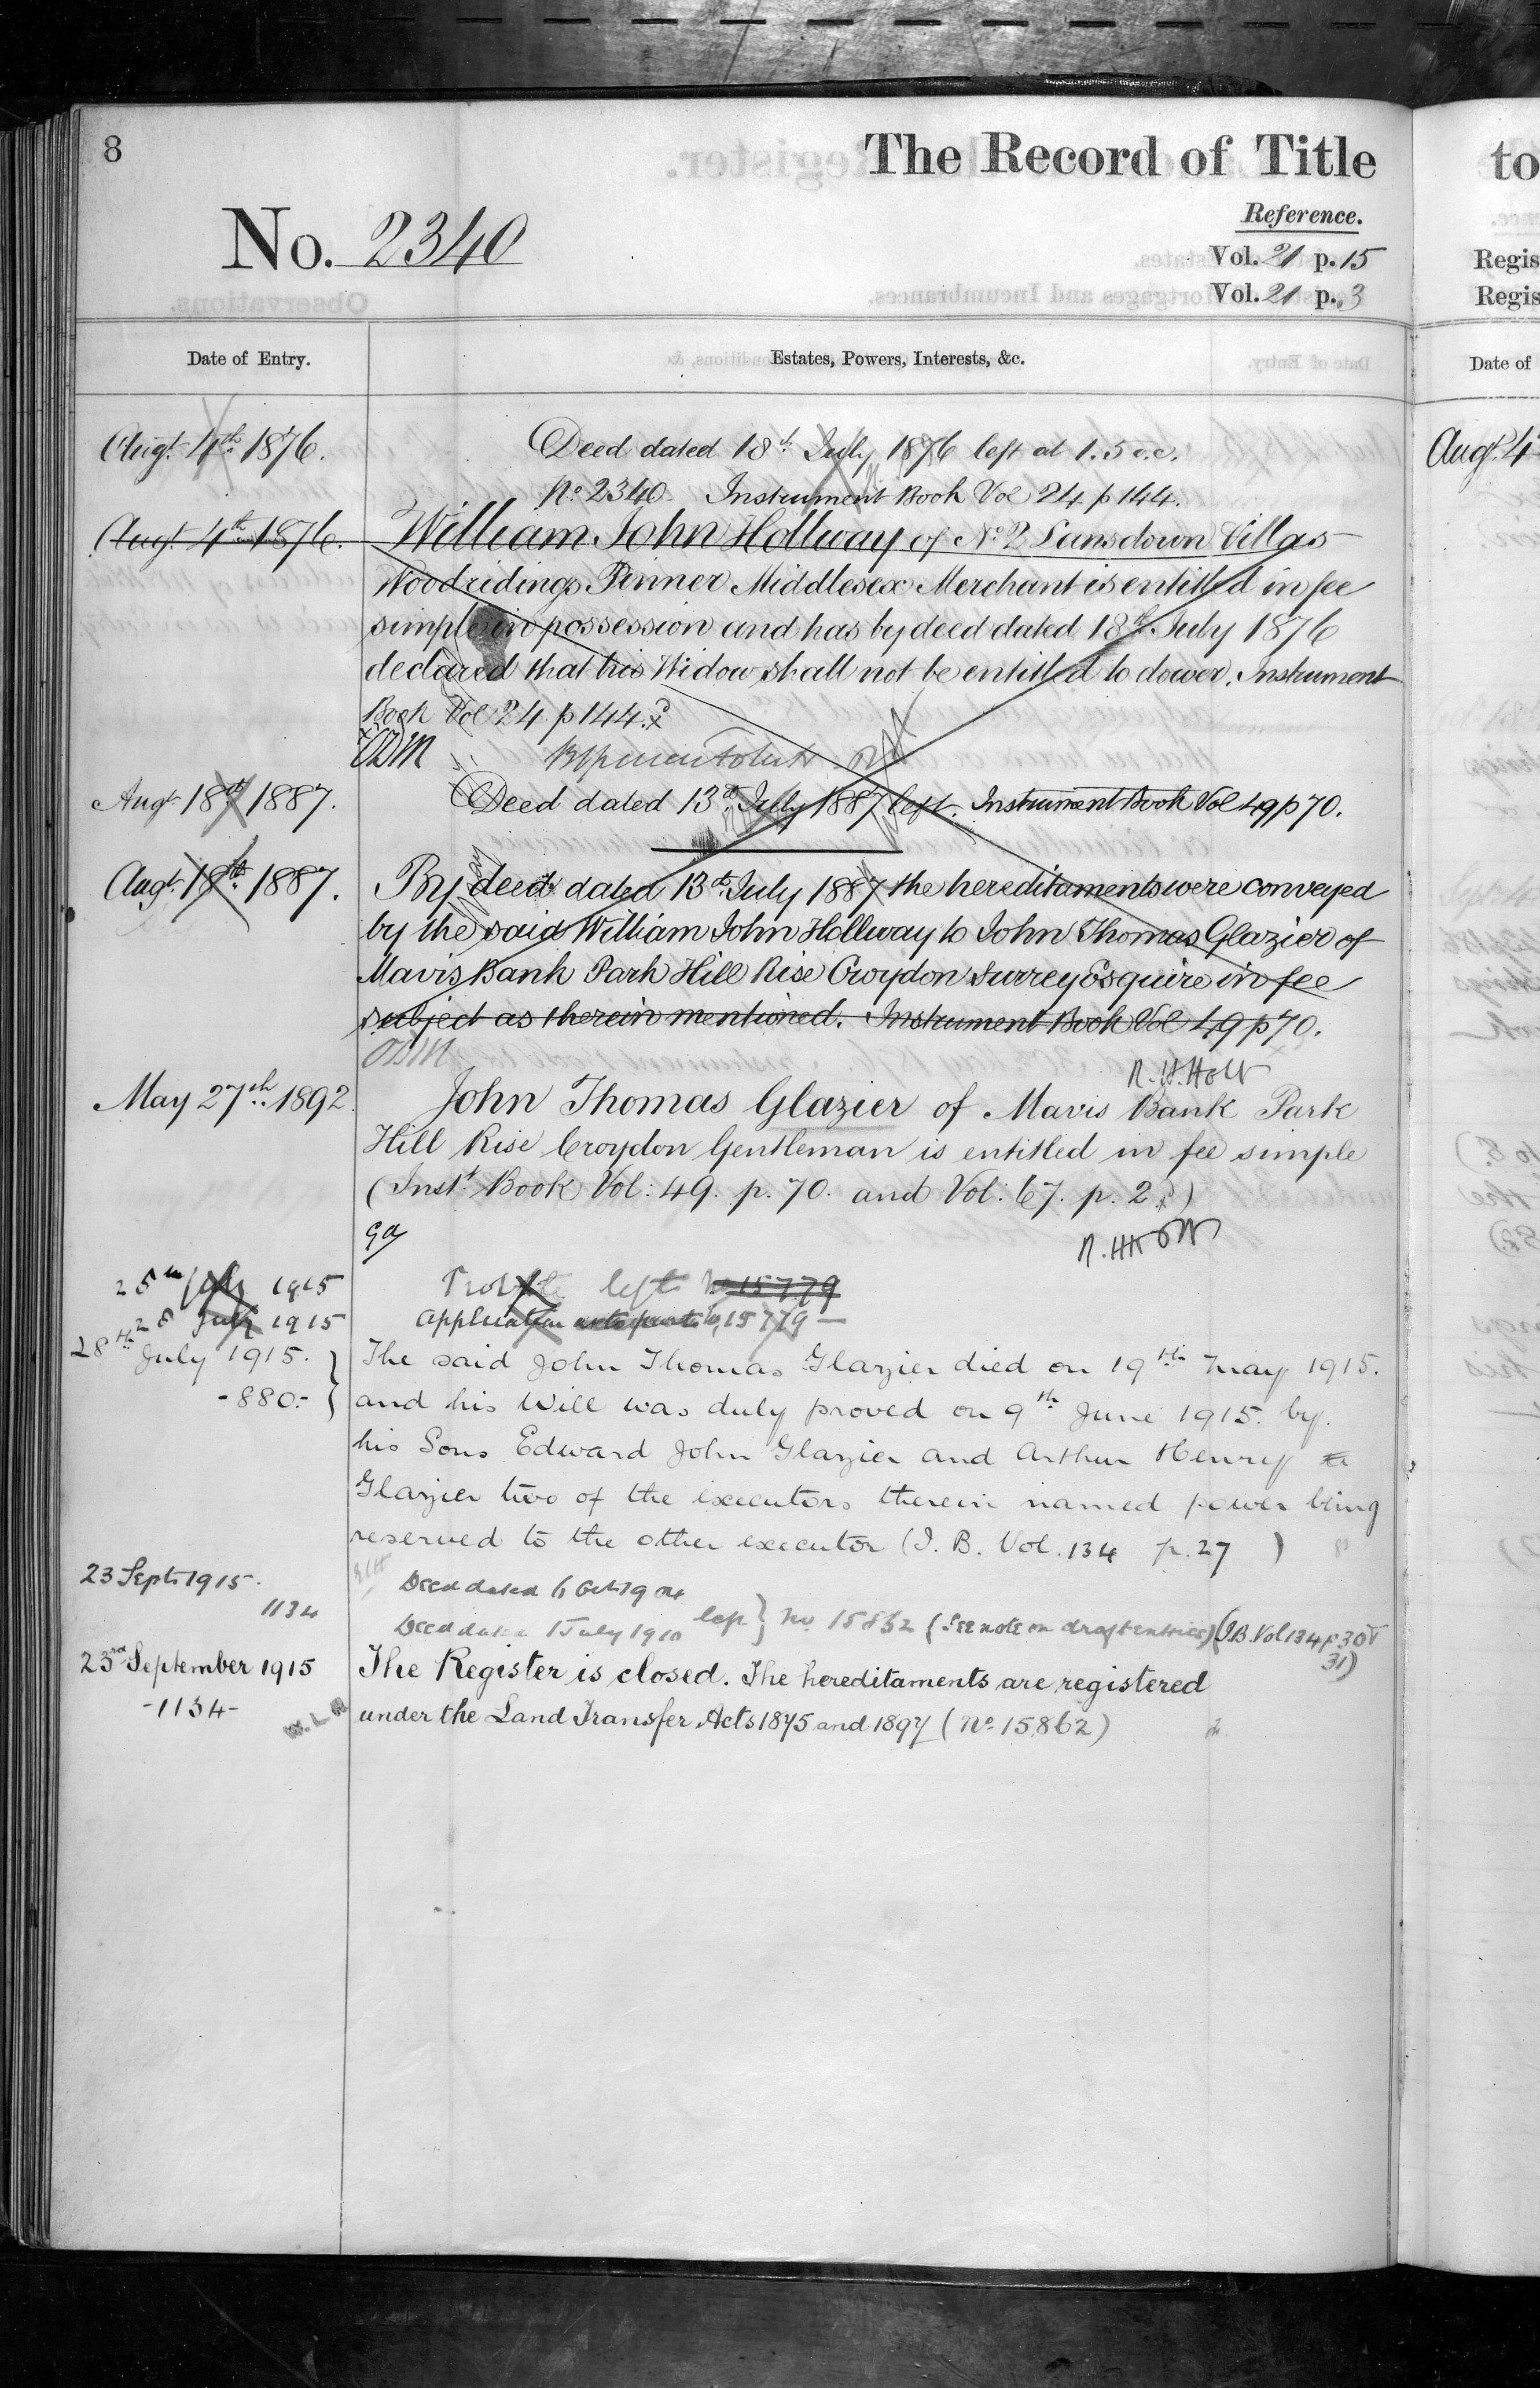 8
The Record of Title
to
Reference.
No. 2340
Vol. 21 p. 15
Vol. 21 p. 3
Regis
Regis
Date of Entry.
Estates, Powers, Interests, &c.
Date of
Augt. 4th 1876.
Deed dated 18th July 1876 left at 1.5
Augt. 4
No 2340 Instrument Book Vol 24 p 144.
Augt. 4th 1876.
William John Hollway of No 2 Lansdown Villas
Woodridings Pinner Middlesex Merchant is entitled in fee
simple in possession and has by deed dated 18th July 1876
declared that his Widow shall not be entitled to dower. Instrument
Book Vol 24 p 144.
Augt 18th 1887.
Deed dated 13th July 1887 left. Instrument Book Vol 49 p 70.
Augt. 18th 1887.
By deed dated 13th July 1887 the hereditaments were conveyed
by the said William John Hollway to John Thomas Glazier of
Mavis Bank Park Hill Rise Croydon Surrey Esquire in fee
subject as therein mentioned. Instrument Book Vol 49 p 70.
R. H. Holt
May 27th. 1892
John Thomas Glazier of Mavis Bank Park
Hill Rise Croydon Gentleman is entitled in fee simple
(Inst. Book Vol: 49. p. 70. and Vol: 67. p. 2)
25th July 1915
Probate left No 15779
28 July 1915
Application 15779
28th July 1915.
The said John Thomas Glazier died on 19th May 1915.
-880-
and his Will was duly proved on 9th June 1915. by
his Sons Edward John Glazier and Arthur Henry
Glazier two of the executors therein named power being
reserved to the other executor (I. B. Vol. 134 p. 27 )
23 Sept 1915.
Deed dated 6 Oct 1904
1134
Deed dated 1 July 1910 left } No 15862 (See note on draft entries) (I.B. Vol 134 p 30
31)
23rd September 1915
The Register is closed. The hereditaments are registered
-1134-
W. L. R
under the Land Transfer Acts 1875 and 1897 (No. 15862)